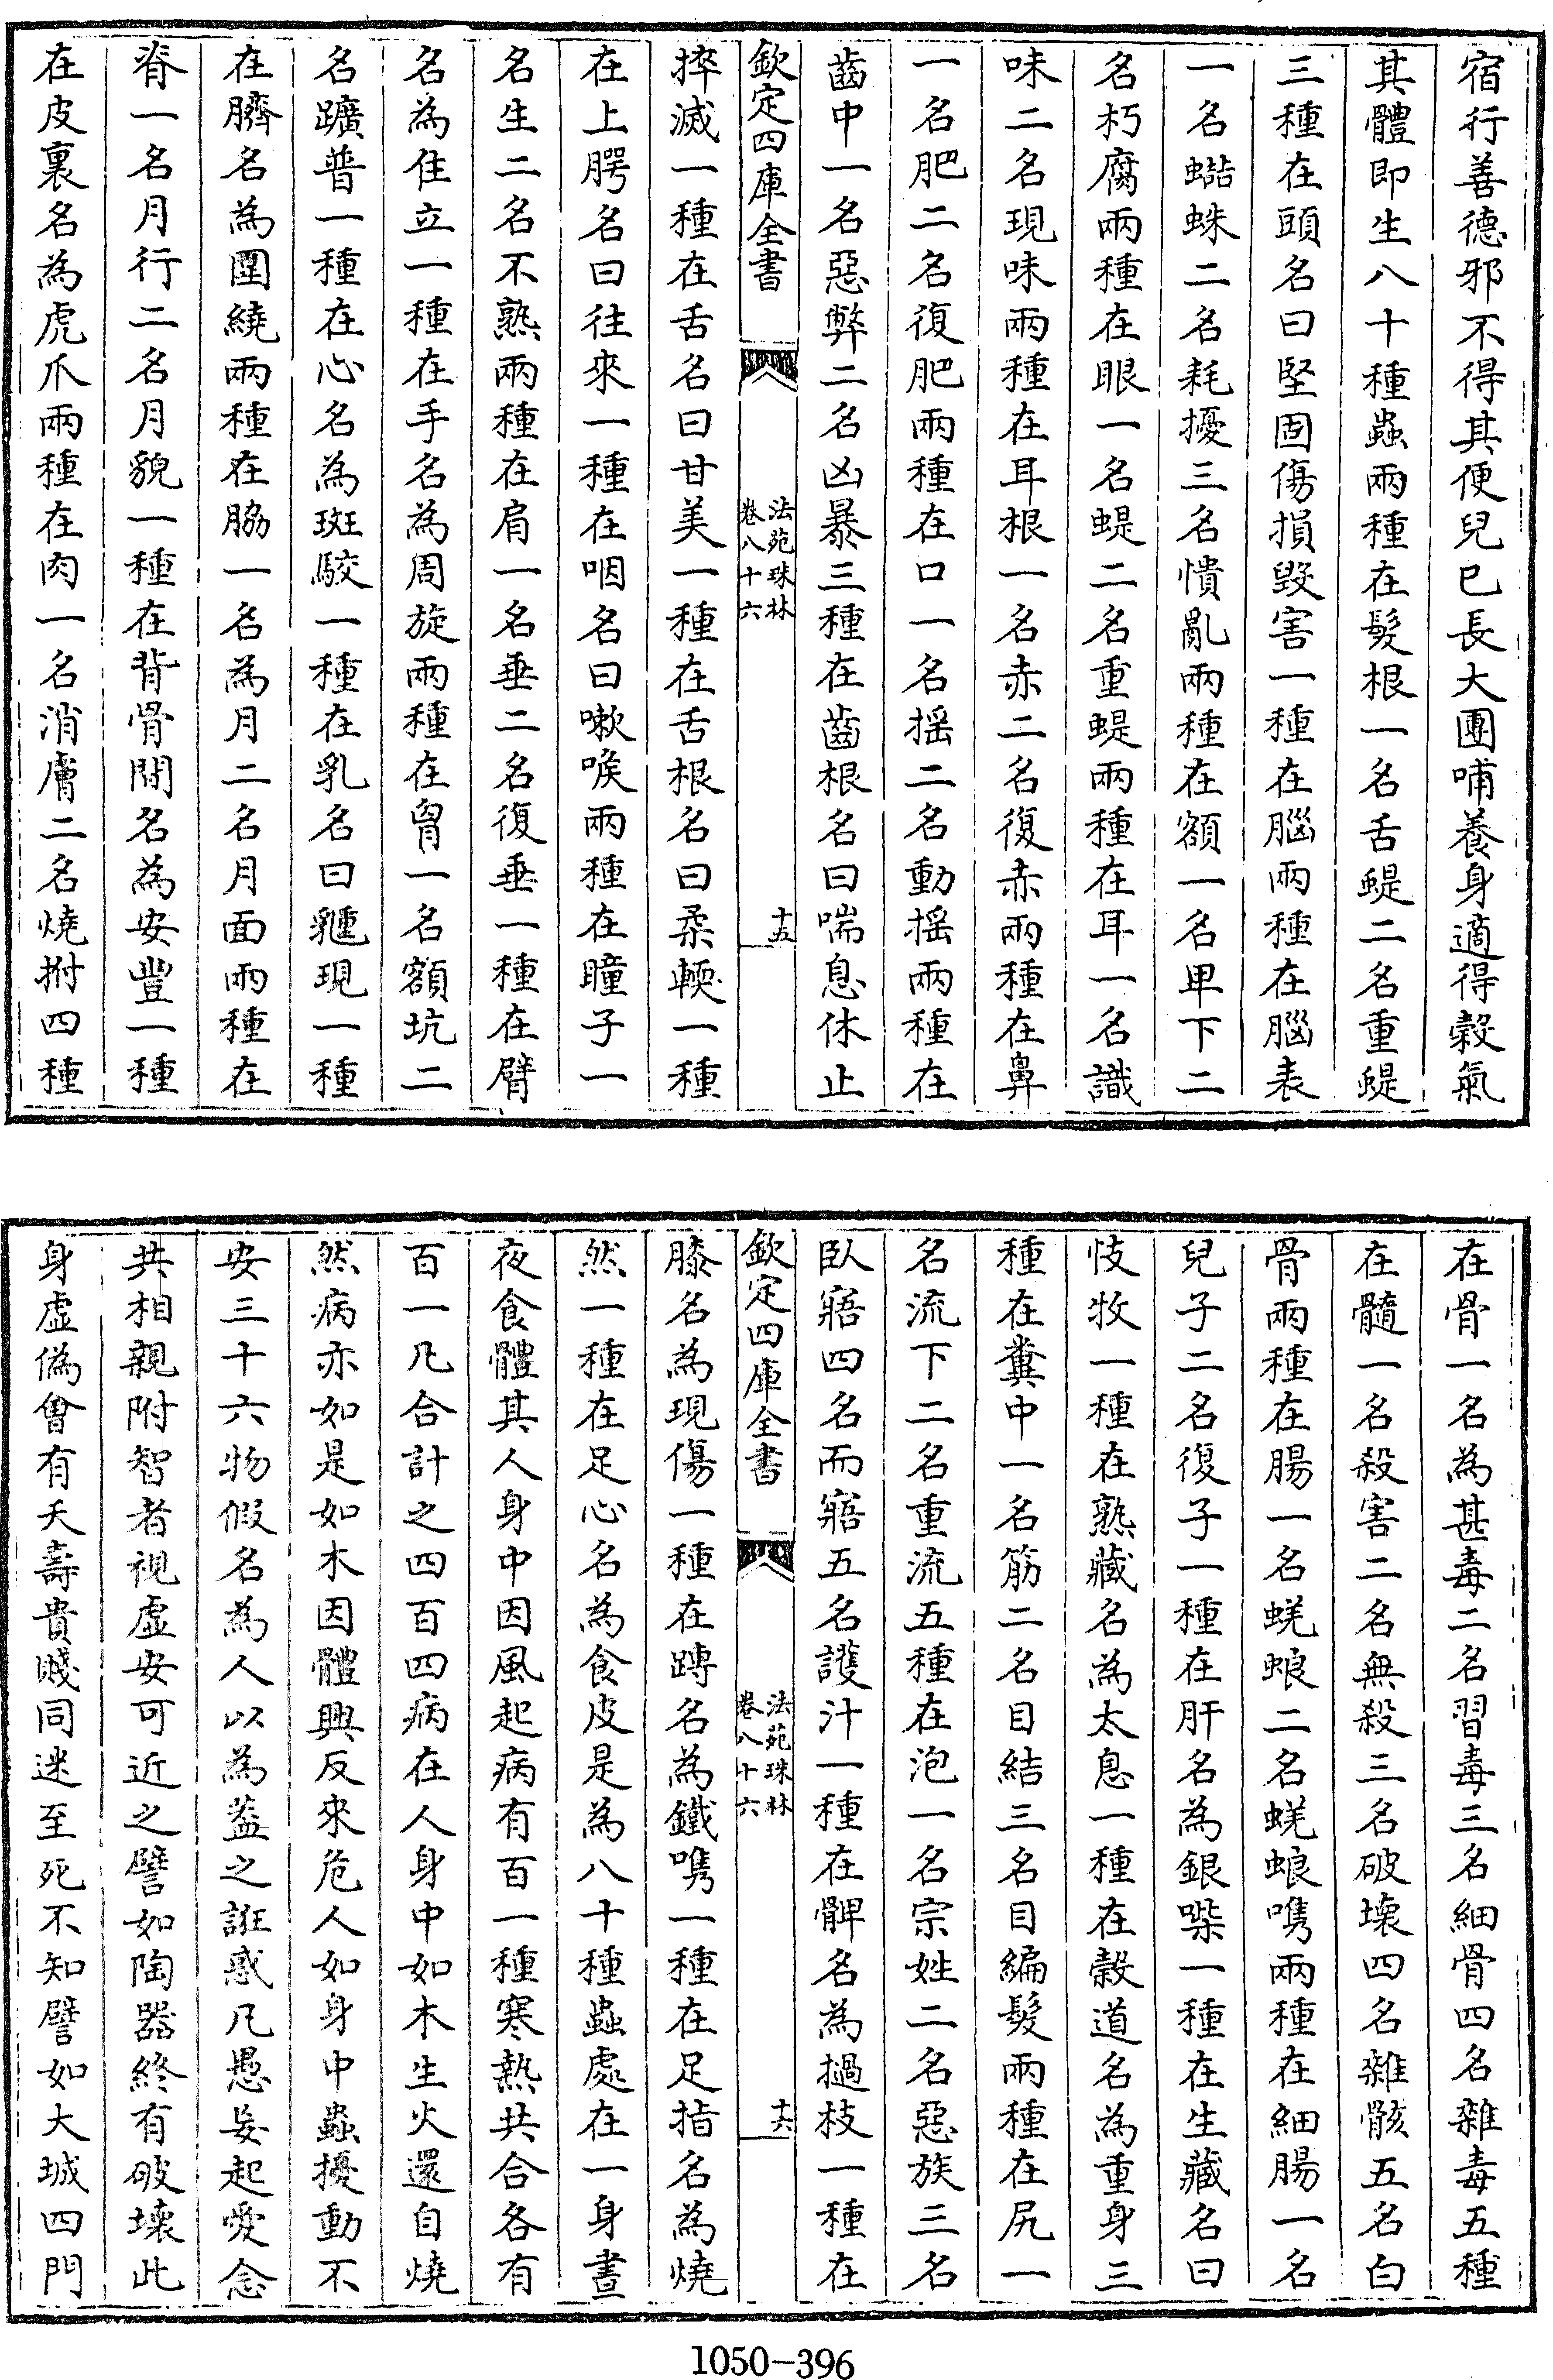 宿行善德邪不得其便兒已長大團哺養身適得穀氣
其體即生八十種蟲兩種在髮根一名舌蝭二名重蝭
三種在頭名曰堅固傷損毀害一種在腦兩種在腦表
一名蠩蛛二名耗擾三名憒亂兩種在額一名卑下二
名朽腐兩種在眼一名蝭二名重蝭兩種在耳一名識
味二名現味兩種在耳根一名赤二名復赤兩種在鼻
一名肥二名復肥兩種在口一名揺二名動揺兩種在
齒中一名惡弊二名凶暴三種在齒根名曰喘息休止
欽定四庫全書
法苑珠林
卷八十六
十五
捽滅一種在舌名曰甘美一種在舌根名曰柔輭一種
在上腭名曰往來一種在咽名曰嗽喉兩種在瞳子一
名生二名不熟兩種在肩一名垂二名復垂一種在臂
名為住立一種在手名為周旋兩種在胷一名額坑二
名躌普一種在心名為斑駮一種在乳名曰𨌳現一種
在臍名為圍繞兩種在脇一名為月二名月面兩種在
脊一名月行二名月貌一種在背骨間名為安豐一種
在皮裏名為虎爪兩種在肉一名消膚二名燒拊四種
在骨一名為甚毒二名習毒三名細骨四名雜毒五種
在髓一名殺害二名無殺三名破壞四名雜骸五名白
骨兩種在腸一名蜣蜋二名蜣蜋嶲兩種在細腸一名
兒子二名復子一種在肝名為銀喍一種在生藏名曰
忮收一種在熟藏名為太息一種在穀道名為重身三
種在糞中一名筋二名目結三名目編髮兩種在尻一
名流下二名重流五種在泡一名宗姓二名惡族三名
臥寤四名而寤五名護汁一種在髀名為撾枝一種在
欽定四庫全書
法苑珠林
卷八十六
十六
膝名為現傷一種在蹲名為鐵嘴一種在足指名為燒
然一種在足心名為食皮是為八十種蟲處在一身晝
夜食體其人身中因風起病有百一種寒熱共合各有
百一凡合計之四百四病在人身中如木生火還自燒
然病亦如是如木因體興反來危人如身中蟲擾動不
安三十六物假名為人以為葢之誑惑凡愚妄起愛念
共相親附智者視虛安可近之譬如陶器終有破壞此
身虛偽會有夭壽貴賤同迷至死不知譬如大城四門
1050-396